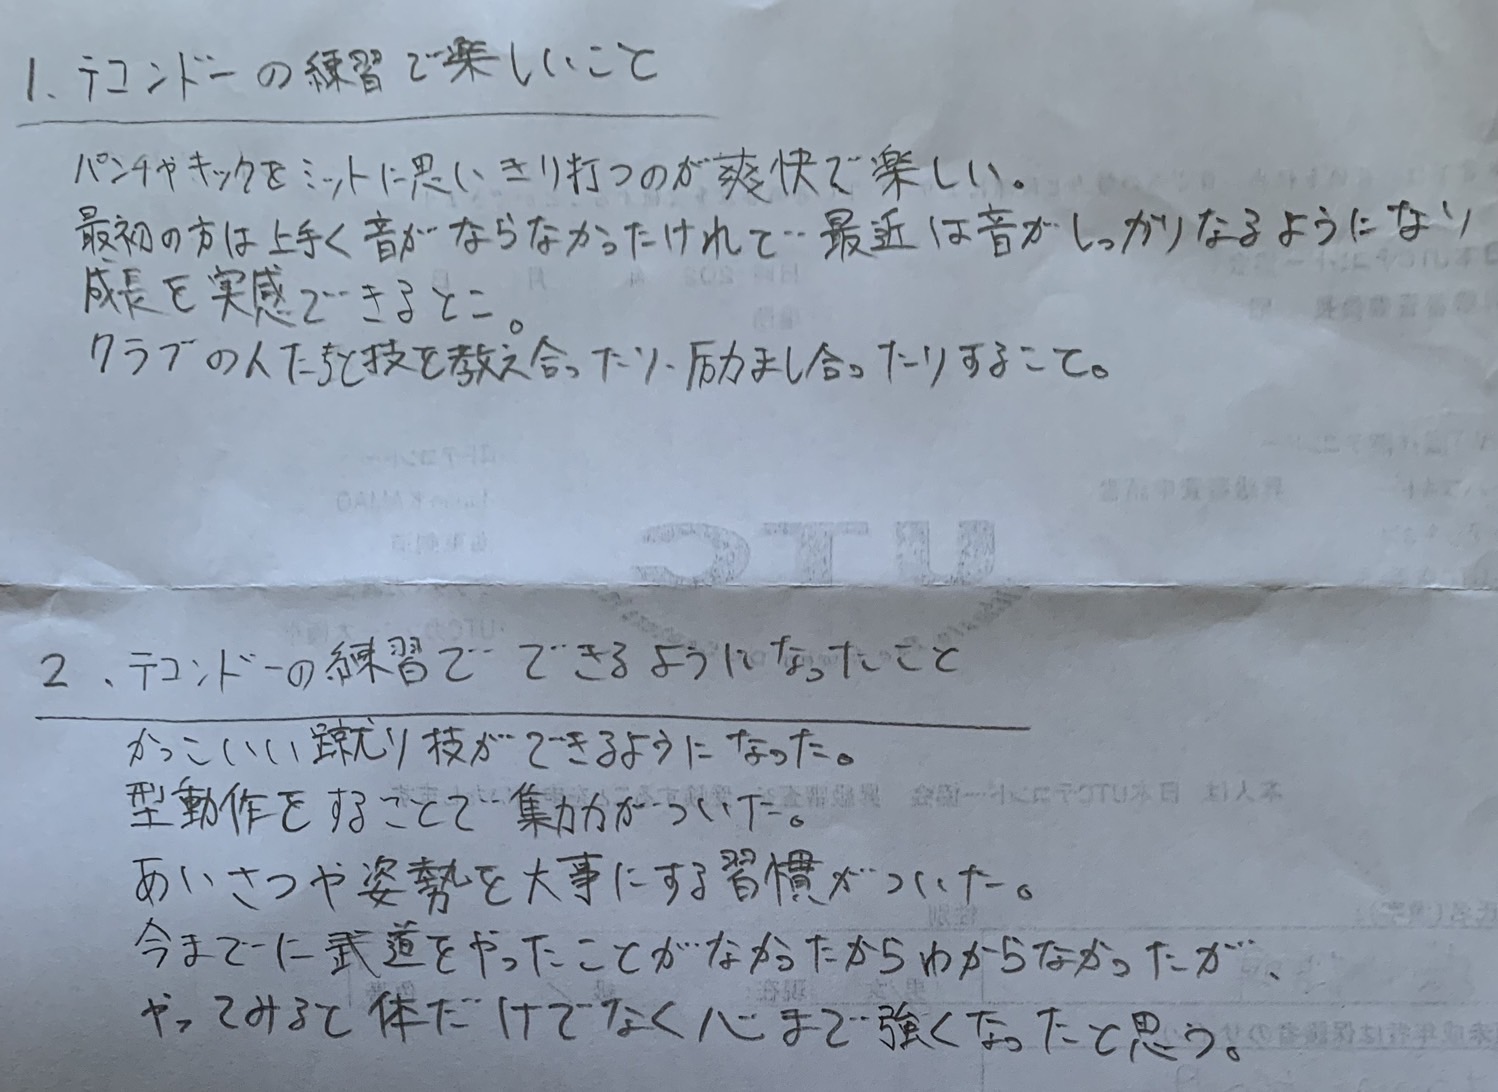 1、テコンドーの練習で楽しいこと
パンチやキックをミットに思いきり打つのが爽快で楽しい。
最初の方は上手く音がならなかったけれど最近は音がしっかりなるようになり
成長を実感できるとこ。
クラブの人たちと技を教え合ったり、励まし合ったりすること。
UTC
2、テコンドーの練習でできるようになったこと
かっこいい蹴り技ができるようになった。
型動作をすることで集力がついた。
あいさつや姿勢を大事にする習慣がついた。
今までに武道をやったことがなかったからわからなかったが、
やってみると体だけでなく心まで強くなったと思う。